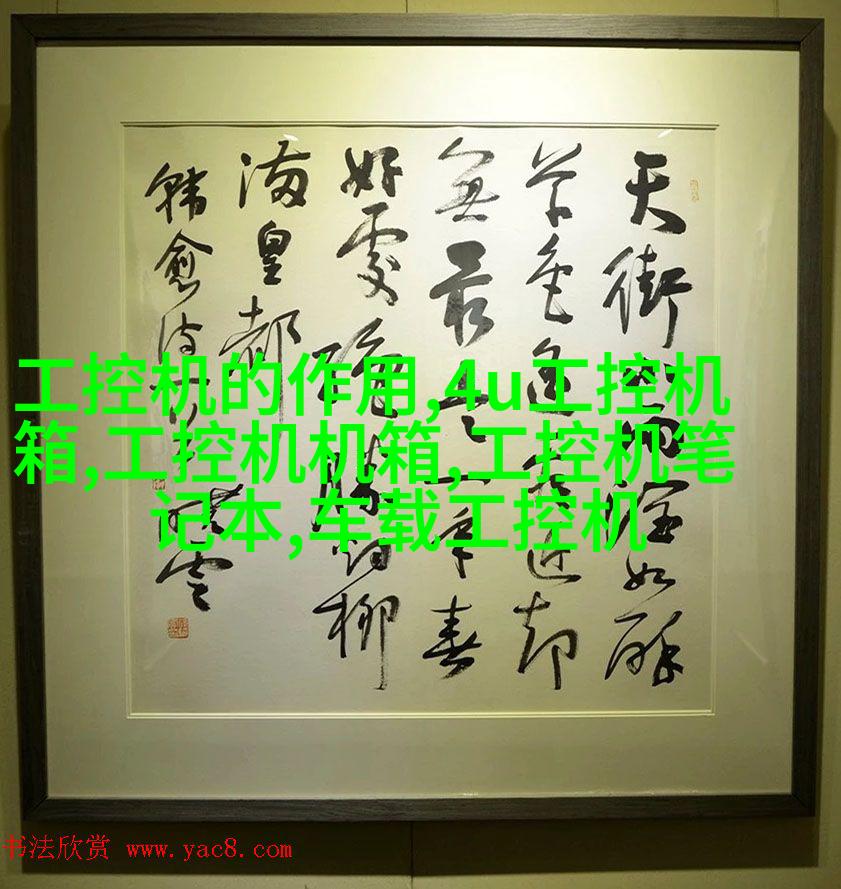 天街小雨润如酥
草色遥看近却
无最是一年春
好处绝胜烟柳
满皇都
韩愈诗一首
晓云
工控机的作用,4u工控机
箱,工控机机箱,工控机笔
记本,车载工控机
书法欣赏 www.yac8.com